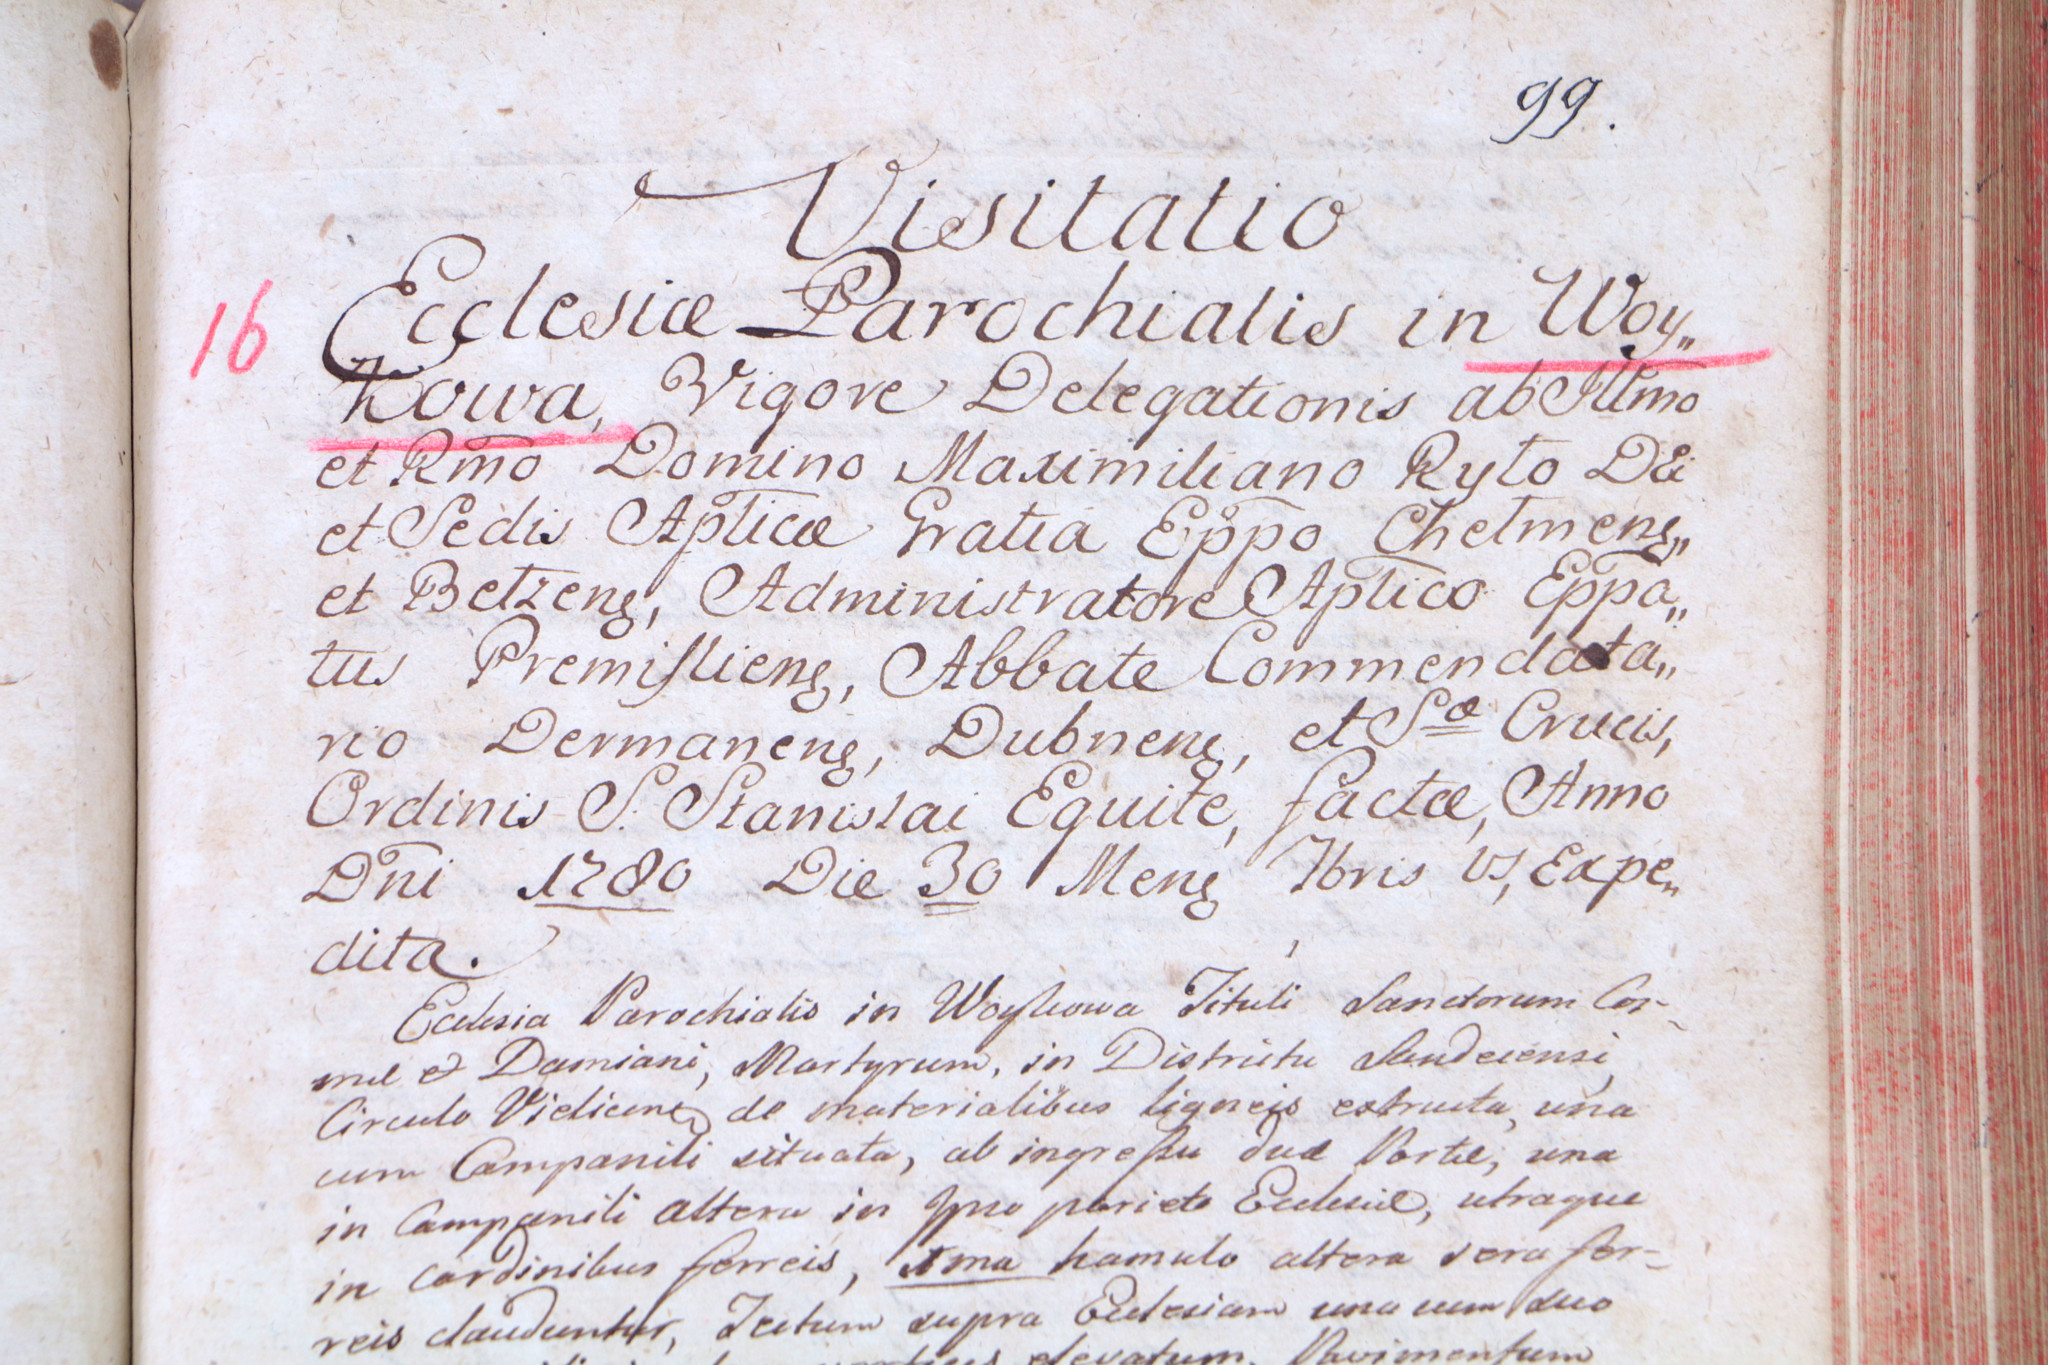 99.
Visitatio
16
Ecclesiæ Parochialis in Woy„
kowa, Vigore Delegationis ab Illmo
et Rmo Domino Maximiliano Ryło Dei
et Sedis Aplicæ Gratia Eppo Chelmens„
et Belzens, Administratore Aplico Eppa„
tus Premisliens, Abbate Commendata„
rio Dermanens, Dubnens, et Sæ Crucis,
Ordinis S. Stanislai Equite, factæ, Anno
Dni 1780 Die 30 Mens 7bris VS, Expe„
dita.
Ecclesia Parochialis in Woykowa Tituli Sanctorum Cos-
mæ et Damiani, Martyrum, in Districtu Sandecensi,
Circulo Vielicens de materialibus ligneis extructa, una
cum Campanili situata, ab ingressu duæ Portæ, una
in Campanili altera in ipso pariete Ecclesiæ, utraque
in Cardinibus ferreis, 1ma hamulo altera sera fer-
reis clauduntur, Tectum supra Ecclesiam una cum suo
elevatum, Pavimentum